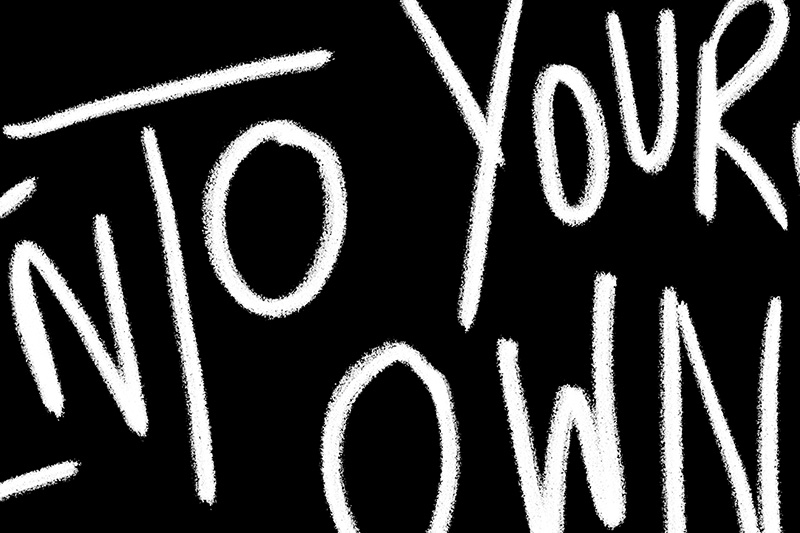 INTO YOUR
OWN